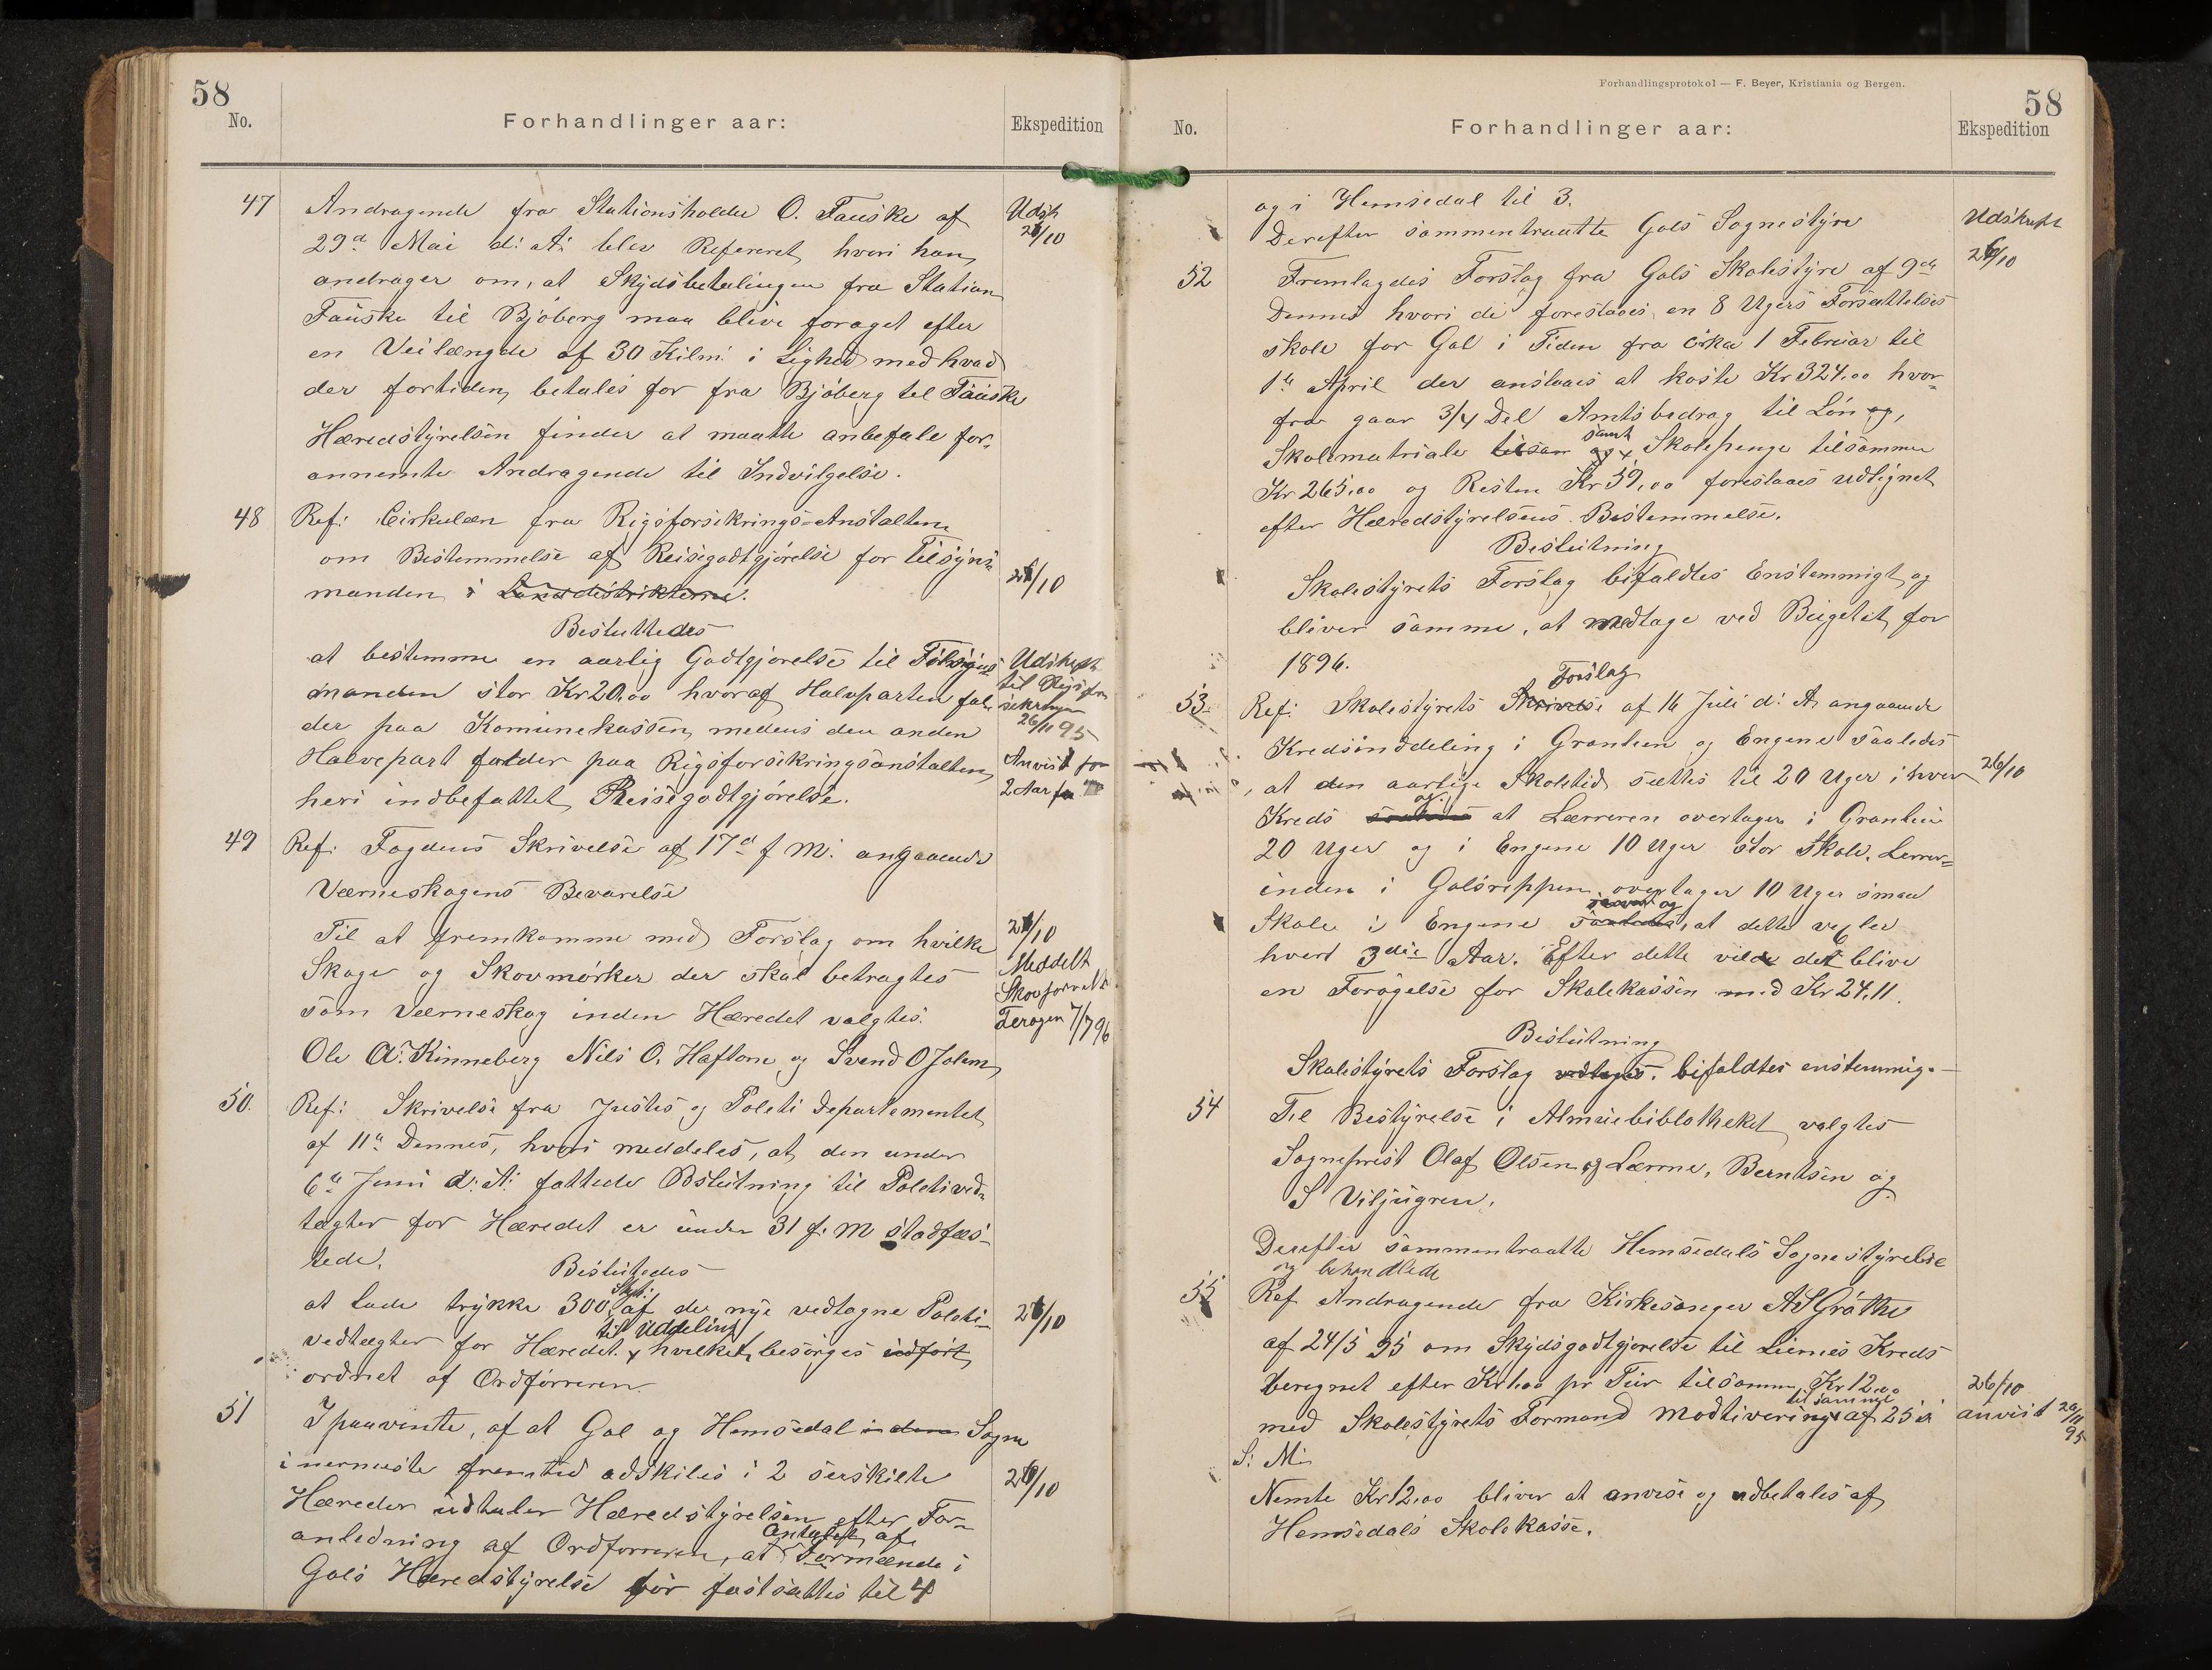 58
No.
Forhandlinger aar:
Ekspedition
47
Andragende fra Stationsholder O. Fauske af
29d Mai d: A: blev Refereret hvori han
andrager om, at Skydsbetalingen fra Station
Fauske til Bjøberg maa blive foraget efter
en Veilængde af 30 Kilm: i Lighed med hvad
der fortiden betales for fra Bjøberg til Fauske
Hæredstyrelsen finder at maatte anbefale for-
annemte Andragende til Indvilgelse.
Udsk
26/10
48
Ref: Cirkulæn fra Rigsforsikrings-Anstalten
om Bestemmelse af Reisegodtgjørelse for Tilsyns-
manden i Landdistrikterne.
26/10
Besluttedes
at bestemme en aarlig Godtgjørelse til Tilsyns
manden stor Kr 20,00 hvoraf Halvparten fal-
der paa Komunekassen, medens den anden
Halvepart falder paa Rigsforsikringsanstalten
heri indbefattet Reisegodtgjørelse.
Udskrift
til Rigsfor
sikringen
26/11 95
Anvist for
2 Aar
49
Ref: Fogdens Skrivelse af 17d f M: angaaende
Værneskogens Bevarelse
Til at fremkomme med Forslag om hvilke
Skoge og Skovmørker der skal betragtes
som Værneskog inden Hæredet valgtes:
Ole A. Kinneberg Nils O. Haftorn og Svend O Jolem
26/10
Meddelt
Skovforvalt
7/7 96
50.
Ref: Skrivelse fra Justis og Politi Departementet
af 11d Dennes, hvori meddeles, at den under
6te Juni d: A: fattede Bslutning til Politived-
tægter for Hæredet er under 31 f. M stadfæs-
tede.
Beslutedes
at lade trykke 300 Stk: af de nye vedtagne Politi-
vedtægter for Hæredet til Uddeling hvilket besørges udført
ordnet af Ordførreren.
26/10
51
I paavente, af at Gol og Hemsedal inden Sogne
i nermeste fremtid adskiles i 2 serskilte
Hæreder udtaler Hæredstyrelsen efter For-
anledning af Ordforreren, at Antalet af Formænde i
Gols Hæredstyrelse bør fastsættes til 4
26/10
Forhandlingsprotokol — F. Beyer, Kristiania og Bergen.
58
No.
Forhandlinger aar:
Ekspedition
og i Hemsedal til 3.
Derefter sammentraatte Gols Sognestyre
Udskrift
26/10
52
Fremlagdes Forslag fra Gols Skolestyre af 9de
Dennes hvori de foreslaaes en 8 Ugers Forsættelses
skole for Gol i Tiden fra cirka 1 Februar til
1te April der anslaaes at koste Kr 324,00 hvor-
fra gaar 3/4 Del Amtsbedrag til Løn og,
Skolematriale tilsam og samt Skolepenge tilsammen
Kr 265,00 og Resten Kr 59,00 foreslaaes udlignet
efter Hæredstyrelsens Bestemmelse.
Beslutning
Skolestyrets Forslag bifaldtes Enstemmigt og
bliver samme, at medtage ved Bugetet for
1896.
53.
Ref: Skolestyrets Skrivelse Forslag af 16 Juli d: A. angaaende
Kredsinddeling i Granlien og Engene saaledes
, at den aarlige Skoletid sættes til 20 Uger i hver
Kreds saaledes og: at Lærreren overtager i Granlien
20 Uger og i Engene 10 Uger stor Skole. Lerrer-
inden i Golsreppen overtager 10 Uger smaa
Skole i Engene saaledes og, at dette vexler
hvert 3die Aar. Efter dette vilde det blive
en Forøgelse for Skolekassen med Kr 24,11.
26/10
Beslutning
Skolestyrets Forslag vedtages. bifaldtes enstemmig. —
54
Til Bestyrelse i Almuebiblotheket valgtes
Sogneprest Olaf Olsen og Lærrne, Berntsen og
S Viljugren.
Derefter sammentraatte Hemsedals Sognestyrelse
og behandlede
55
Ref Andragende fra Kirkesanger A S Grøthe
af 24/5 95 om Skydsgodtgjørelse til Liemes Kreds
beregnet efter Kr 1,00 pr Tur tilsamm Kr 12,00
med Skolestyrets Formand Modtivering til samme af 25de
S: M:
Nemte Kr 12,00 bliver at anvise og udbetales af
Hemsedals Skolekasse.
26/10
anvist 26/11 95